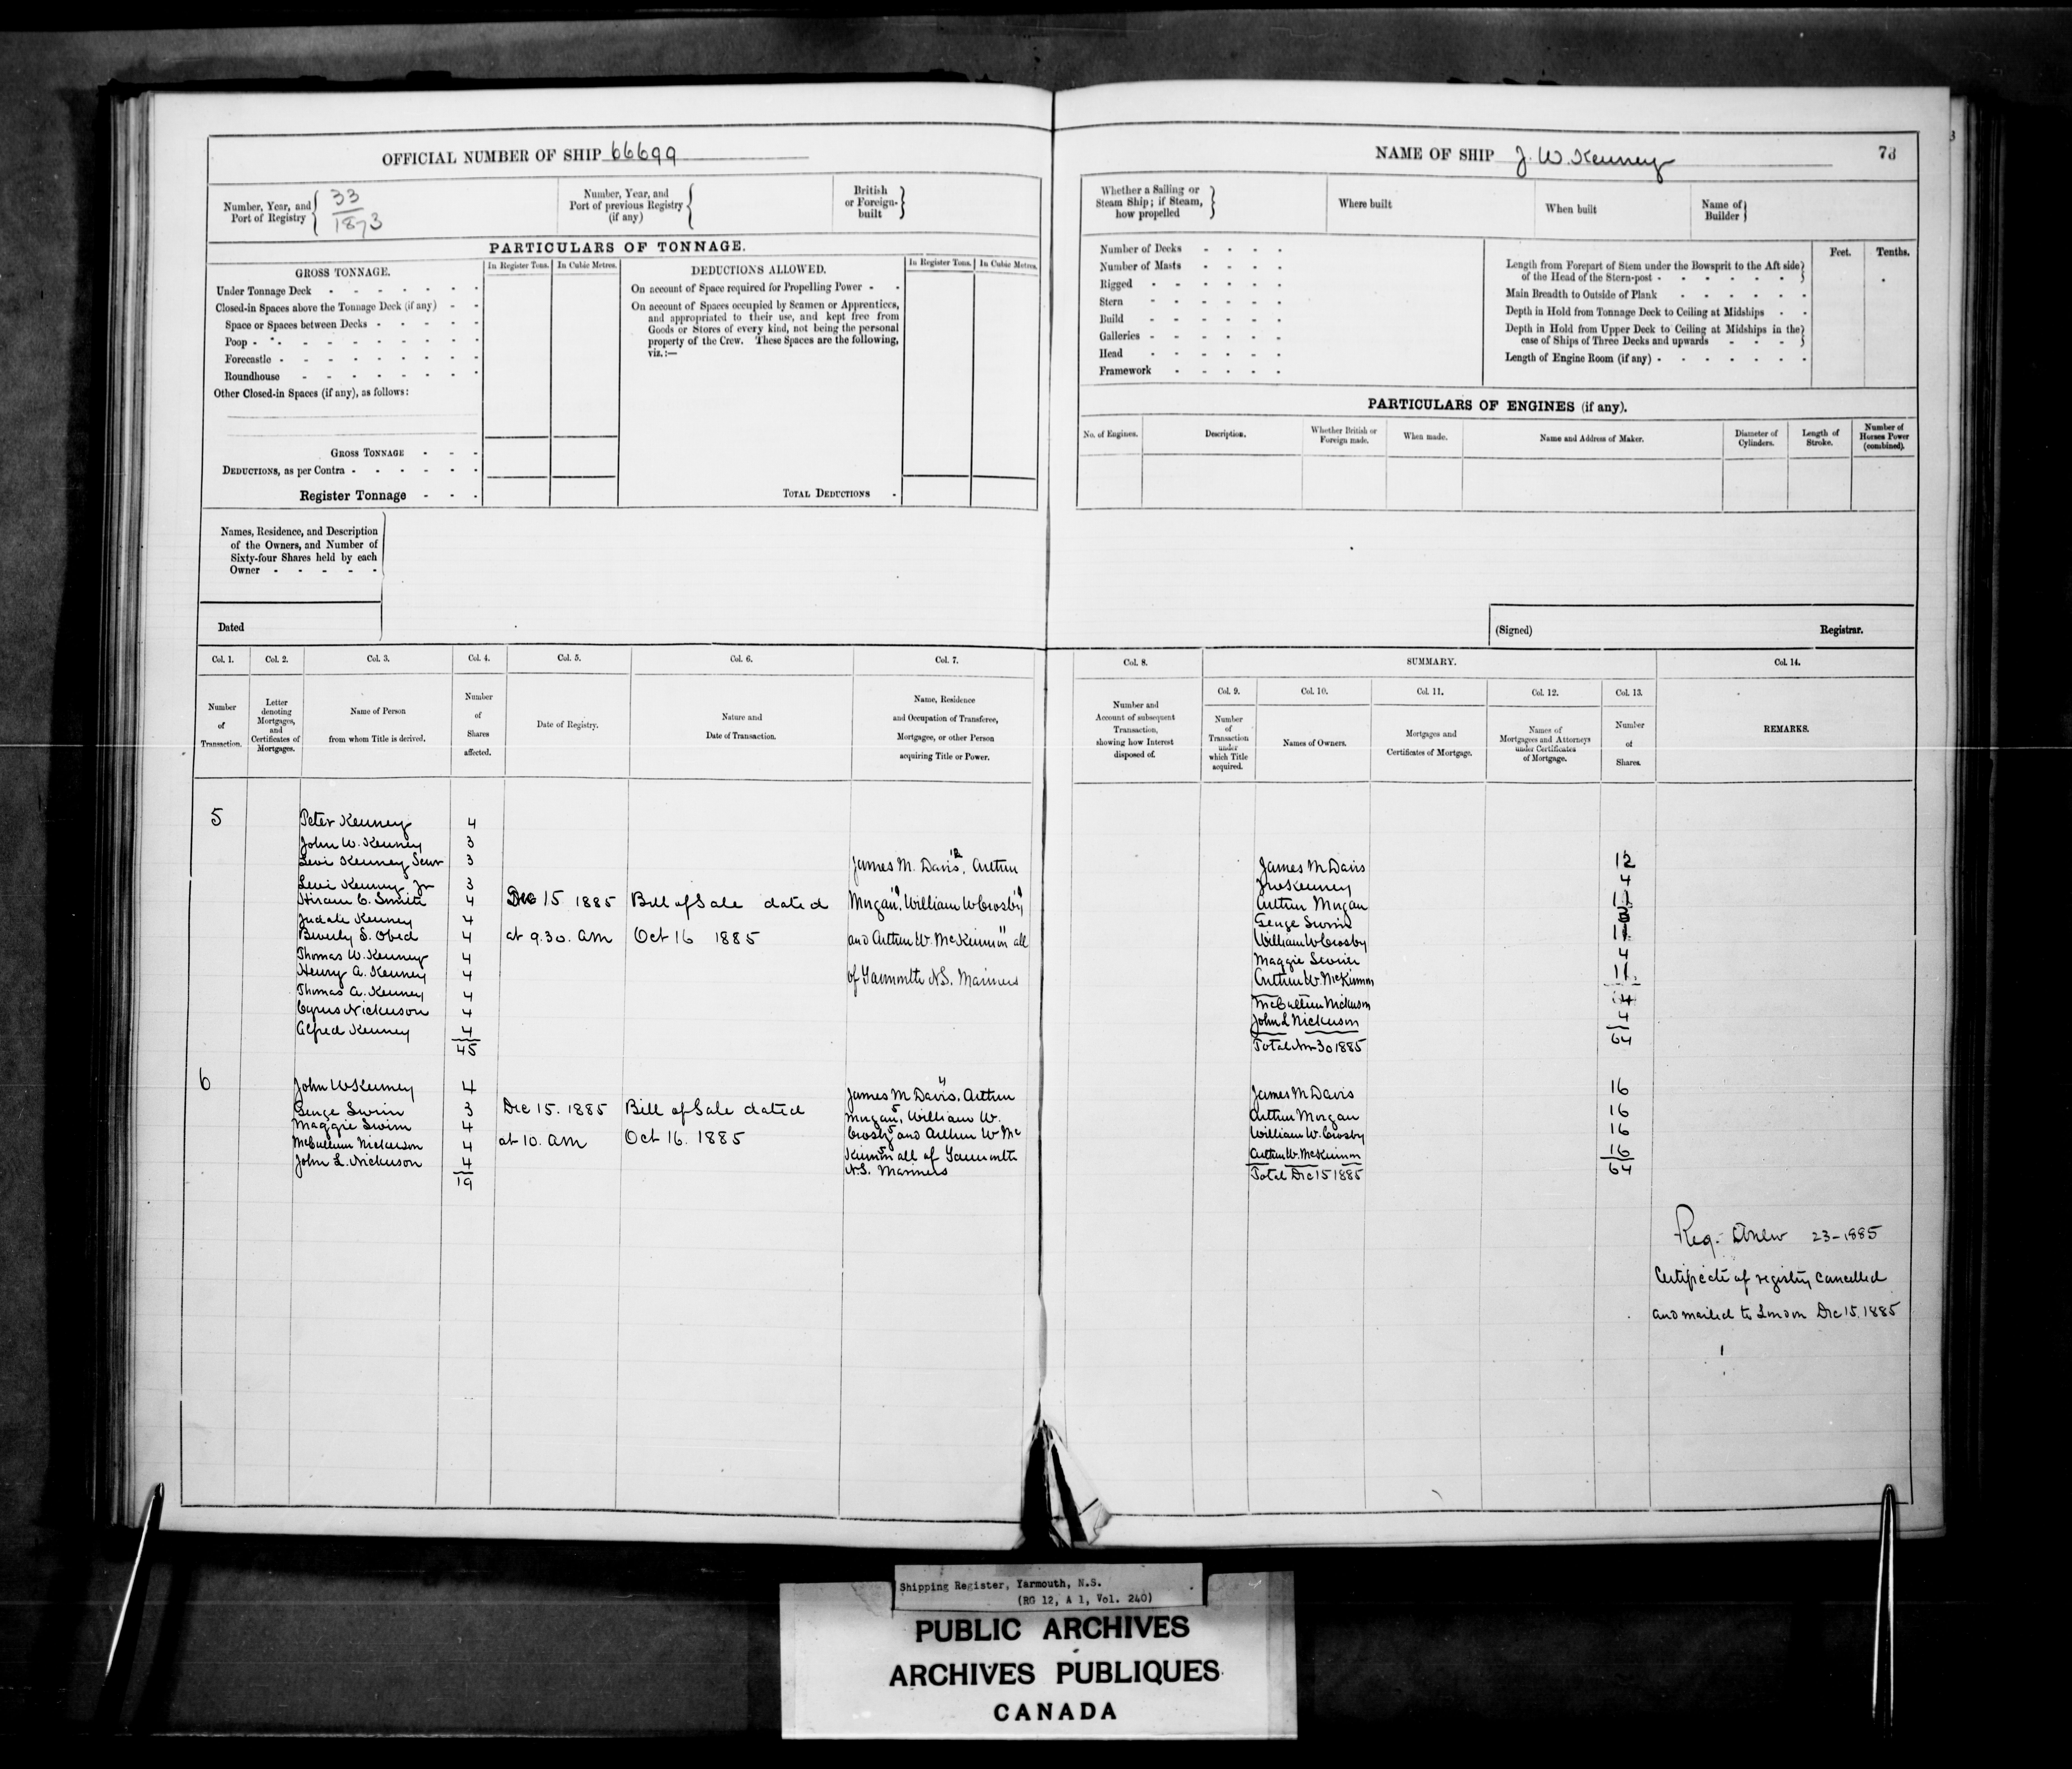 OFFICIAL NUMBER OF SHIP 66699
Number, Year, and Port of Registry { 33 / 1873
Number, Year, and Port of previous Registry (if any) {
British or Foreign-built }
PARTICULARS OF TONNAGE.
GROSS TONNAGE.
In Register Tons. In Cubic Metres.
DEDUCTIONS ALLOWED.
In Register Tons. In Cubic Metres.
Under Tonnage Deck
Closed-in Spaces above the Tonnage Deck (if any)
Space or Spaces between Decks
Poop
Forecastle
Roundhouse
Other Closed-in Spaces (if any), as follows:
GROSS TONNAGE
DEDUCTIONS, as per Contra
Register Tonnage
On account of Space required for Propelling Power
On account of Spaces occupied by Seamen or Apprentices,
and appropriated to their use, and kept free from
Goods or Stores of every kind, not being the personal
property of the Crew. These Spaces are the following,
viz.:—
TOTAL DEDUCTIONS
Names, Residence, and Description
of the Owners, and Number of
Sixty-four Shares held by each
Owner
Dated
NAME OF SHIP J. W. Kenney
73
Whether a Sailing or
Steam Ship; if Steam,
how propelled }
Where built
When built
Name of Builder }
Number of Decks
Number of Masts
Rigged
Stern
Build
Galleries
Head
Framework
Feet. Tenths.
Length from Forepart of Stem under the Bowsprit to the Aft side
of the Head of the Stern-post
Main Breadth to Outside of Plank
Depth in Hold from Tonnage Deck to Ceiling at Midships
Depth in Hold from Upper Deck to Ceiling at Midships in the
case of Ships of Three Decks and upwards
Length of Engine Room (if any)
PARTICULARS OF ENGINES (if any).
No. of Engines.
Description.
Whether British or Foreign made.
When made.
Name and Address of Maker.
Diameter of Cylinders.
Length of Stroke.
Number of Horses Power (combined).
(Signed) Registrar.
Col. 1. Col. 2. Col. 3. Col. 4. Col. 5. Col. 6. Col. 7.
Number of Transaction.
Letter denoting Mortgages, and Certificates of Mortgages.
Name of Person from whom Title is derived.
Number of Shares affected.
Date of Registry.
Nature and Date of Transaction.
Name, Residence and Occupation of Transferee, Mortgagee, or other Person acquiring Title or Power.
Col. 8. SUMMARY. Col. 14.
Col. 9. Col. 10. Col. 11. Col. 12. Col. 13.
Number and Account of subsequent Transaction, showing how Interest disposed of.
Number of Transaction under which Title acquired.
Names of Owners.
Mortgages and Certificates of Mortgage.
Names of Mortgagees and Attorneys under Certificates of Mortgage.
Number of Shares.
REMARKS.
5
Peter Kenney 4
John W. Kenney 3
Levi Kenney Senr 3
Levi Kenney Jr 3
Hiram C. Smith 4
Judah Kenney 4
Beverly S. Obed 4
Thomas W. Kenney 4
Henry A. Kenney 4
Thomas A. Kenney 4
Cyrus Nickerson 4
Alfred Kenney 4
45
Dec 15 1885
at 9.30. am
Bill of Sale dated
Oct 16 1885
James M. Davis 12, Arthur
Morgan 11, William W Crosby 11
and Arthur W. McKinnon 11 all
of Yarmouth N.S. Mariners
James M Davis 12
Jno Kenney 4
Arthur Morgan 11
George Swim
William W Crosby
Maggie Swim 4
Arthur W. McKinnon 11
McCullum Nickerson 4
John L Nickerson 4
Total Nov 30 1885 64
6
John W Kenney 4
George Swim 3
Maggie Swim 4
McCullum Nickerson 4
John L. Nickerson 4
19
Dec 15. 1885
at 10. am
Bill of Sale dated
Oct 16. 1885
James M Davis 4, Arthur
Morgan 5, William W.
Crosby 5 and Arthur W Mc
Kinnon 5 all of Yarmouth
N.S. Mariners
James M Davis 16
Arthur Morgan 16
William W. Crosby 16
Arthur W. McKinnon 16
Total Dec 15 1885 64
Reg. Anew 23-1885
Certificate of registry cancelled
and mailed to London Dec 15. 1885
Shipping Register, Yarmouth, N.S.
(RG 12, A 1, Vol. 240)
PUBLIC ARCHIVES
ARCHIVES PUBLIQUES
CANADA